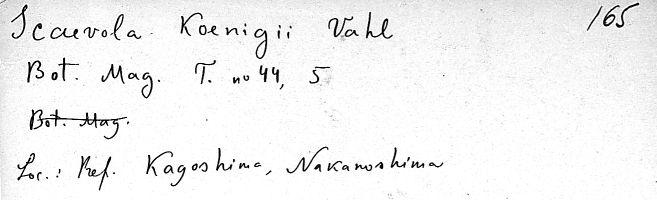 Scaevola Koenigii Vahl 165
Bot. Mag. T. no 44, 5
Bot. Mag.
Loc.: Pref. Kagoshima, Nakanoshima